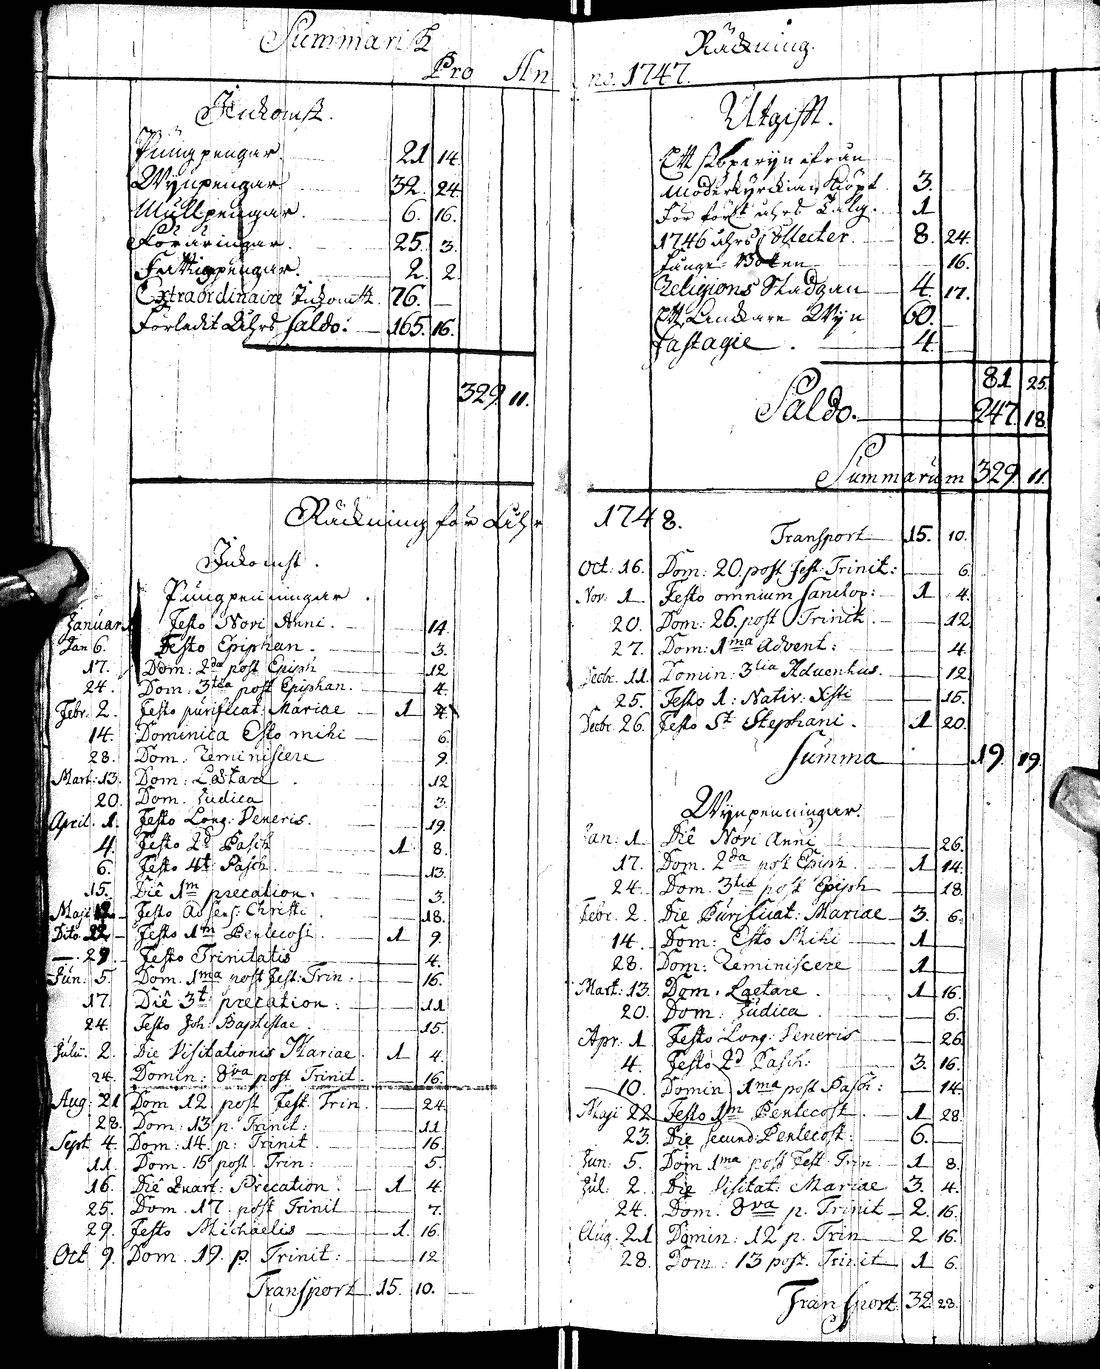 Summarisk Räkning.
Pro Anno. 1747.
Inkomst.
Pungpengar. 21 14.
Wijnpengar 32. 24
Mullpengar. 6. 16.
Föräringar. 25. 3.
Fattigpengar. 2. 2
Extraordinaire Inkomst. 76. —
Förledit Åhrs Saldo. 165. 16.
329 11.
Räkning för Åhr
Inkomst.
Pungpenningar.
Januari 1 Festo Novi Anni. 14.
Jan 6. Festo Epiphan. 3.
17. Dom: 2da post Epiph 12
24. Dom. 3tia post Epiphan. 4.
Febr. 2. Festo purificat: Mariae 1 4.
14. Dominica Esto mihi 6.
28. Dom. Reminiscere 9.
Mart: 13. Dom: Lætare 12
20. Dom. Judica 3.
April. 1. Festo Long: Veneris. 19.
4. Festo 2d Pasch 1 8.
6. Festo 4t: Pasch. 13.
15. Die 1m precation. 3.
Maji 12 Festo Adsens: Christi 18.
Dito 22 Festo 1m Pentecost. 1 9.
— 29 Festo Trinitatis 4.
Jun. 5. Dom. 1ma post fest: Trin: 16.
17. Die 3t: precation: 11
24. Festo Joh: Baptistae. 15.
Julii. 2. Die Visitationis Mariae. 1 4.
24. Domin: 8va post Trinit. 16.
Aug: 21 Dom 12 post Fest. Trin. 24.
28. Dom: 13 p. Trinit: 11
Sept 4. Dom: 14. p: Trinit 16.
11. Dom. 15 post. Trin: 5.
16. Die Quart: Precation. 1 4.
25. Dom. 17. post Trinit 7.
29. Festo Michaelis 1. 16.
Oct 9. Dom. 19. p. Trinit: 12
Transport 15. 10.
Utgifft.
Ett
Moderkyrckian Kiöpt. 3.
För förra åhrs Talg. 1
1746 åhrs Collecter. 8. 24.
16.
Religions Stadgan 4. 17.
Ett Anckare Wijn 60.
Fastagie. 4.
81 25.
Saldo. 247. 18
Summarum 329 11.
1748.
Transport 15. 10.
Oct: 16. Dom: 20. post fest: Trinit: 6.
Nov. 1 Festo omnium Sanctor: 1 4.
20. Dom: 26. post Trinit. 12
27. Dom: 1ma Advent: 4.
Decbr. 11. Domin: 3tia Adventus. 12
25. Festo 1: Nativ: Xsti 15.
Decbr. 26. Festo St Stephani. 1 20.
Summa 19. 19.
Wijnpenningar.
Jan: 1. Die Novi Anni 26.
17. Dom. 2da post Epiph 1 14.
24. Dom. 3tia post Epiph 18.
Febr. 2. Die Purificat: Mariae 3. 6.
14. Dom: Esto Mihi 1
28. Dom: Reminiscere 1
Mart: 13. Dom. Laetare. 1 16.
20. Dom: Judica. 6.
Apr. 1 Festo Long: Veneris 26.
4. Festo 2d Pasch: 3. 16.
10. Domin 1ma post Pasch: 14.
Maji 22. Festo 1m Pentecost. 1 28.
23. Die secund: Pentecost: 6.
Jun: 5. Dom 1ma post Fest: Trin 1 8.
Jul: 2. Die Visitat: Mariae 3. 4.
24. Dom: 8va p. Trinit 2. 16.
Aug: 21 Domin: 12 p. Trin 2 16.
28. Dom: 13 post. Trinit 1 6.
Transport. 32 28.